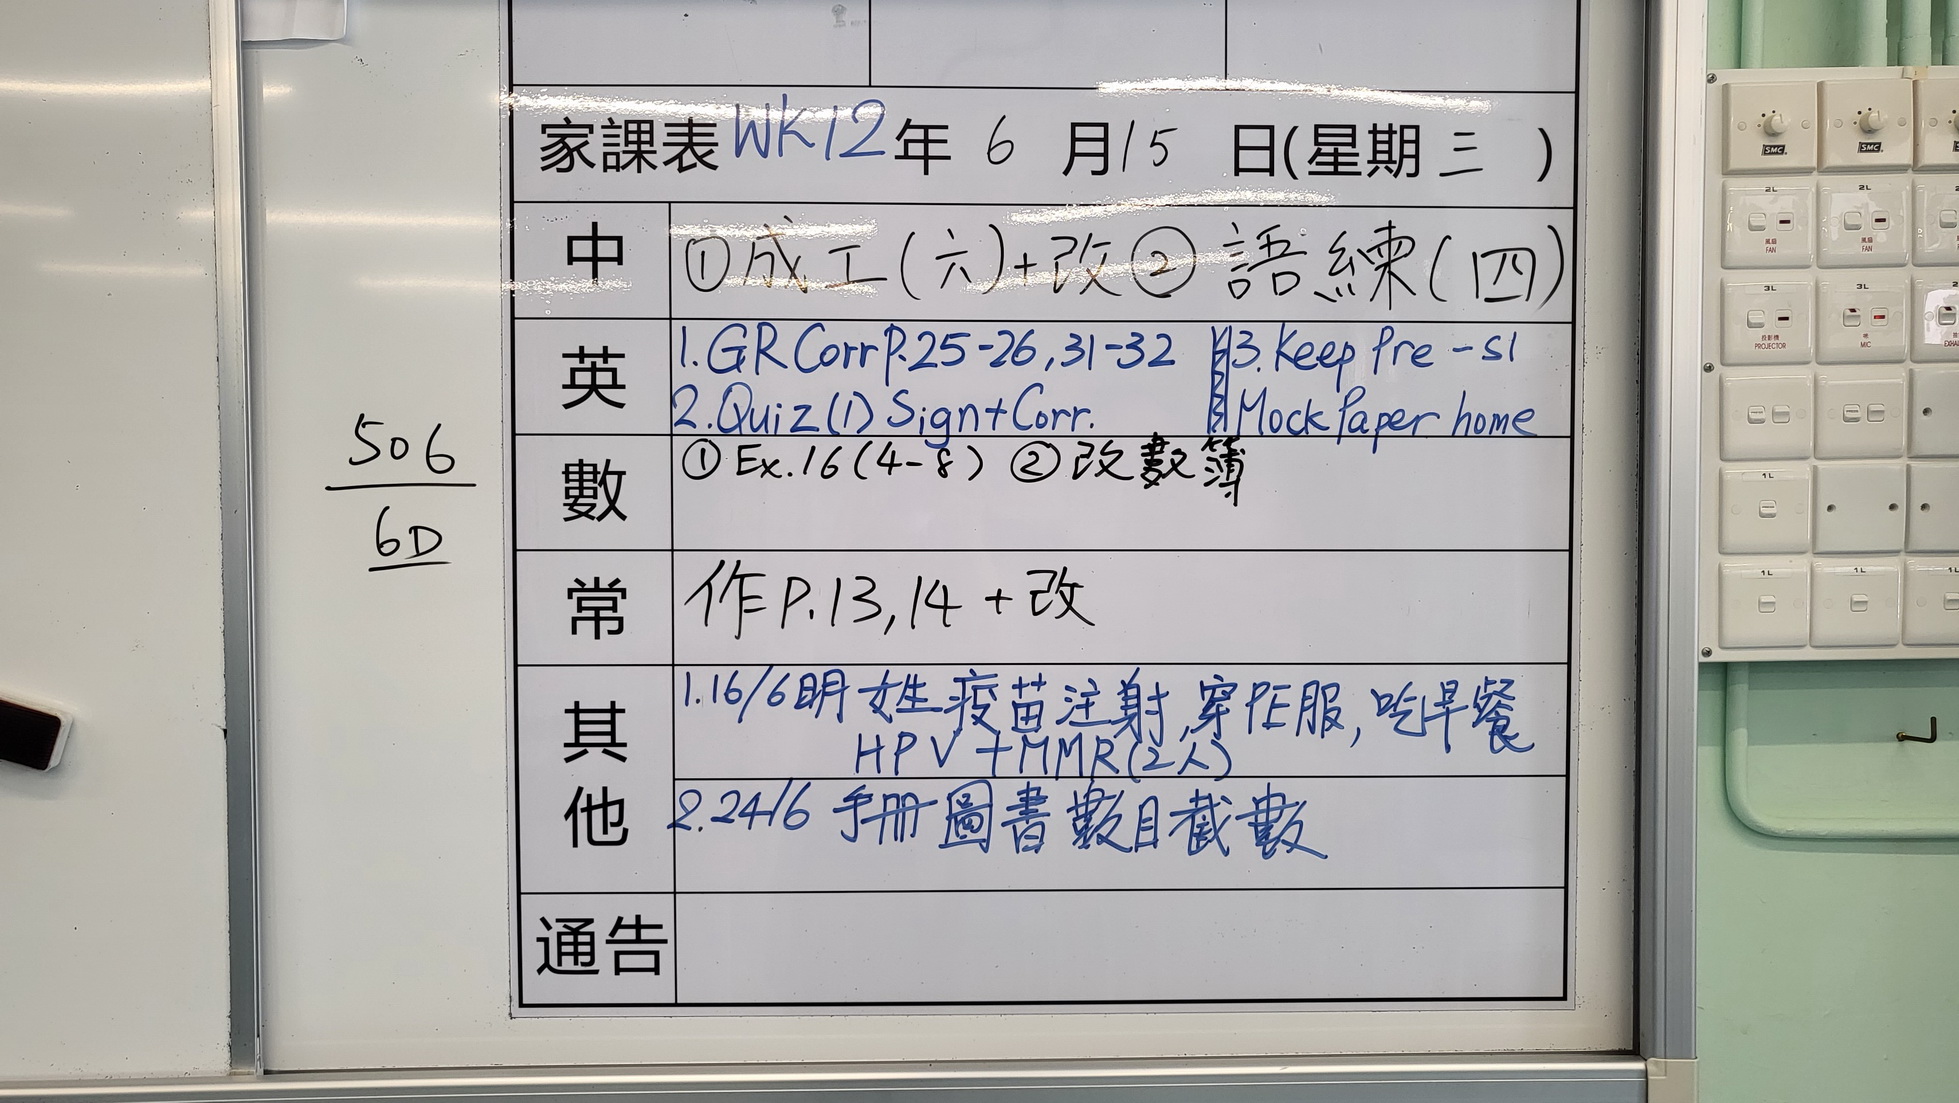 家課表WK12年 6 月15 日(星期三 )
中 ①成工(六)+改② 語練(四)
英 1.GR Corr P.25-26,31-32 3.Keep Pre-S1
2.Quiz(1) Sign+Corr. Mock Paper home
數 ① Ex.16(4-8) ② 改數簿
常 作P.13,14 + 改
其他
1.16/6明 女生疫苗注射,穿PE服,吃早餐
HPV+MMR(2人)
2.24/6 手冊圖書數目截數
通告
506
6D
SMC
SMC
2L
2L
風扇
FAN
風扇
FAN
3L
3L
2
投影機
PROJECTOR
咪
MIC
1L
1L
1L
1L